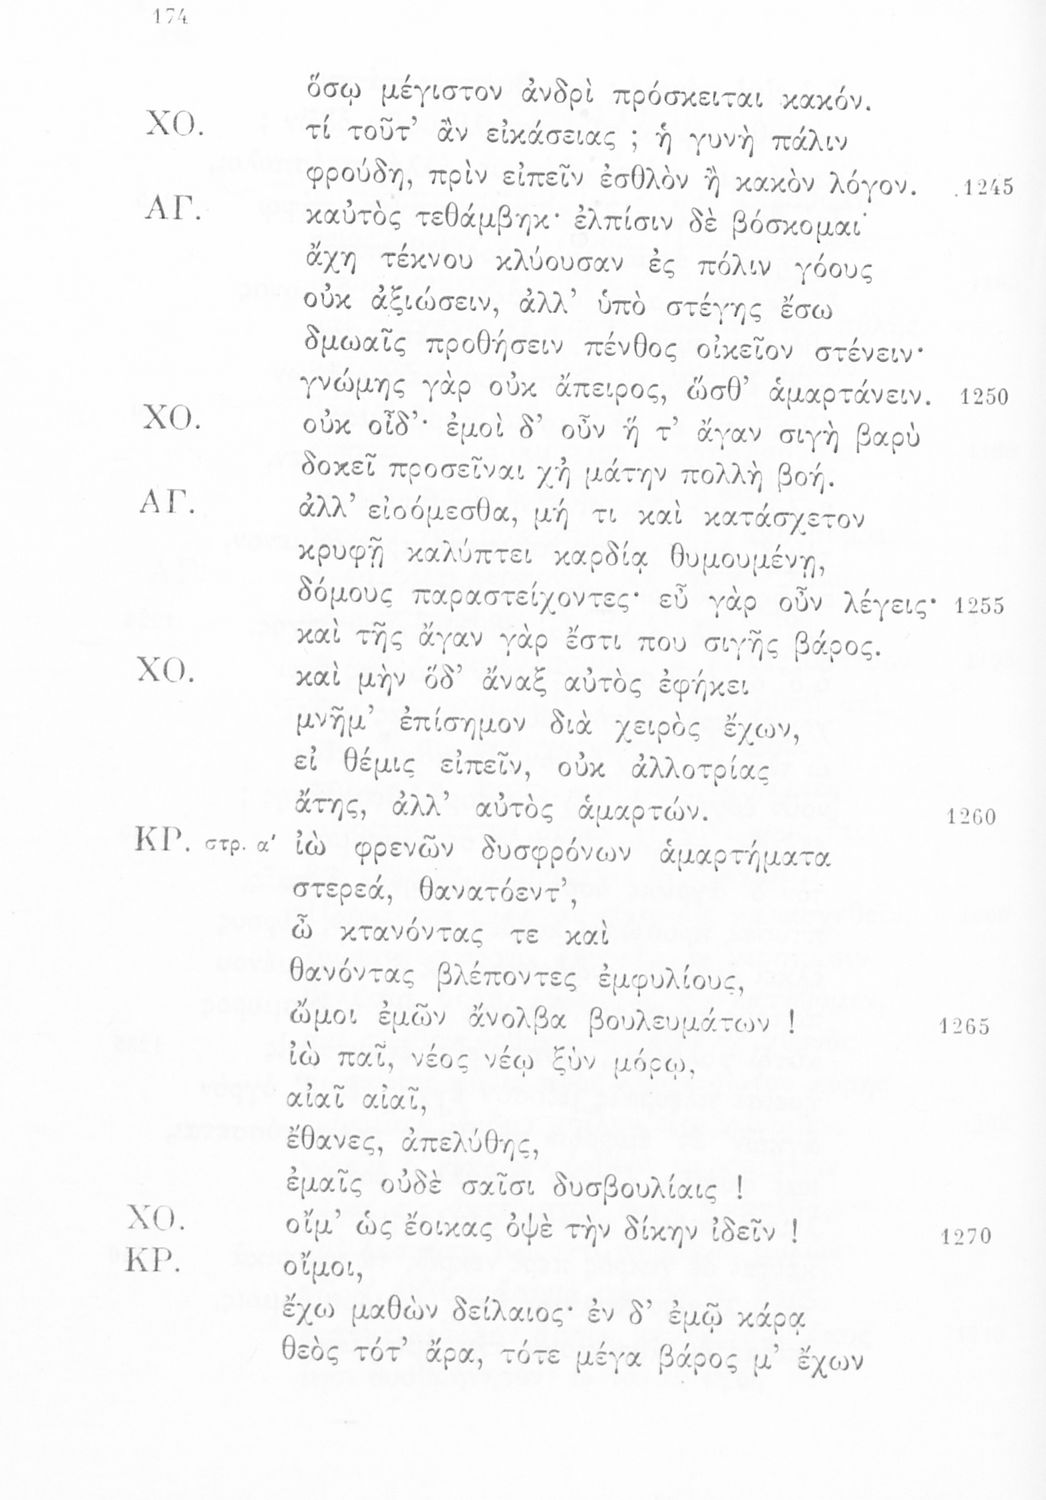 174
ὅσῳ μέγιστον ἀνδρὶ πρόσκειται κακόν.
ΧΟ. τί τοῦτ’ ἂν εἰκάσειας ; ἡ γυνὴ πάλιν
φρούδη, πρὶν εἰπεῖν ἐσθλὸν ἢ κακὸν λόγον. 1245
ΑΓ. καὐτὸς τεθάμβηκ· ἐλπίσιν δὲ βόσκομαι
ἄχη τέκνου κλύουσαν ἐς πόλιν γόους
οὐκ ἀξιώσειν, ἀλλ’ ὑπὸ στέγης ἔσω
δμωαῖς προθήσειν πένθος οἰκεῖον στένειν·
γνώμης γὰρ οὐκ ἄπειρος, ὥσθ’ ἁμαρτάνειν. 1250
ΧΟ. οὐκ οἶδ’· ἐμοὶ δ’ οὖν ἥ τ’ ἄγαν σιγὴ βαρὺ
δοκεῖ προσεῖναι χἠ μάτην πολλὴ βοή.
ΑΓ. ἀλλ’ εἰσόμεσθα, μή τι καὶ κατάσχετον
κρυφῇ καλύπτει καρδίᾳ θυμουμένῃ,
δόμους παραστείχοντες· εὖ γὰρ οὖν λέγεις· 1255
καὶ τῆς ἄγαν γὰρ ἔστι που σιγῆς βάρος.
ΧΟ. καὶ μὴν ὅδ’ ἄναξ αὐτὸς ἐφήκει
μνῆμ’ ἐπίσημον διὰ χειρὸς ἔχων,
εἰ θέμις εἰπεῖν, οὐκ ἀλλοτρίας
ἄτης, ἀλλ’ αὐτὸς ἁμαρτών. 1260
ΚΡ. στρ. α’ ἰὼ φρενῶν δυσφρόνων ἁμαρτήματα
στερεά, θανατόεντ’,
ὦ κτανόντας τε καὶ
θανόντας βλέποντες ἐμφυλίους,
ὤμοι ἐμῶν ἄνολβα βουλευμάτων ! 1265
ἰὼ παῖ, νέος νέῳ ξὺν μόρῳ,
αἰαῖ αἰαῖ,
ἔθανες, ἀπελύθης,
ἐμαῖς οὐδὲ σαῖσι δυσβουλίαις !
ΧΟ. οἴμ’ ὡς ἔοικας ὀψὲ τὴν δίκην ἰδεῖν ! 1270
ΚΡ. οἴμοι,
ἔχω μαθὼν δείλαιος· ἐν δ’ ἐμῷ κάρᾳ
θεὸς τότ’ ἄρα, τότε μέγα βάρος μ’ ἔχων